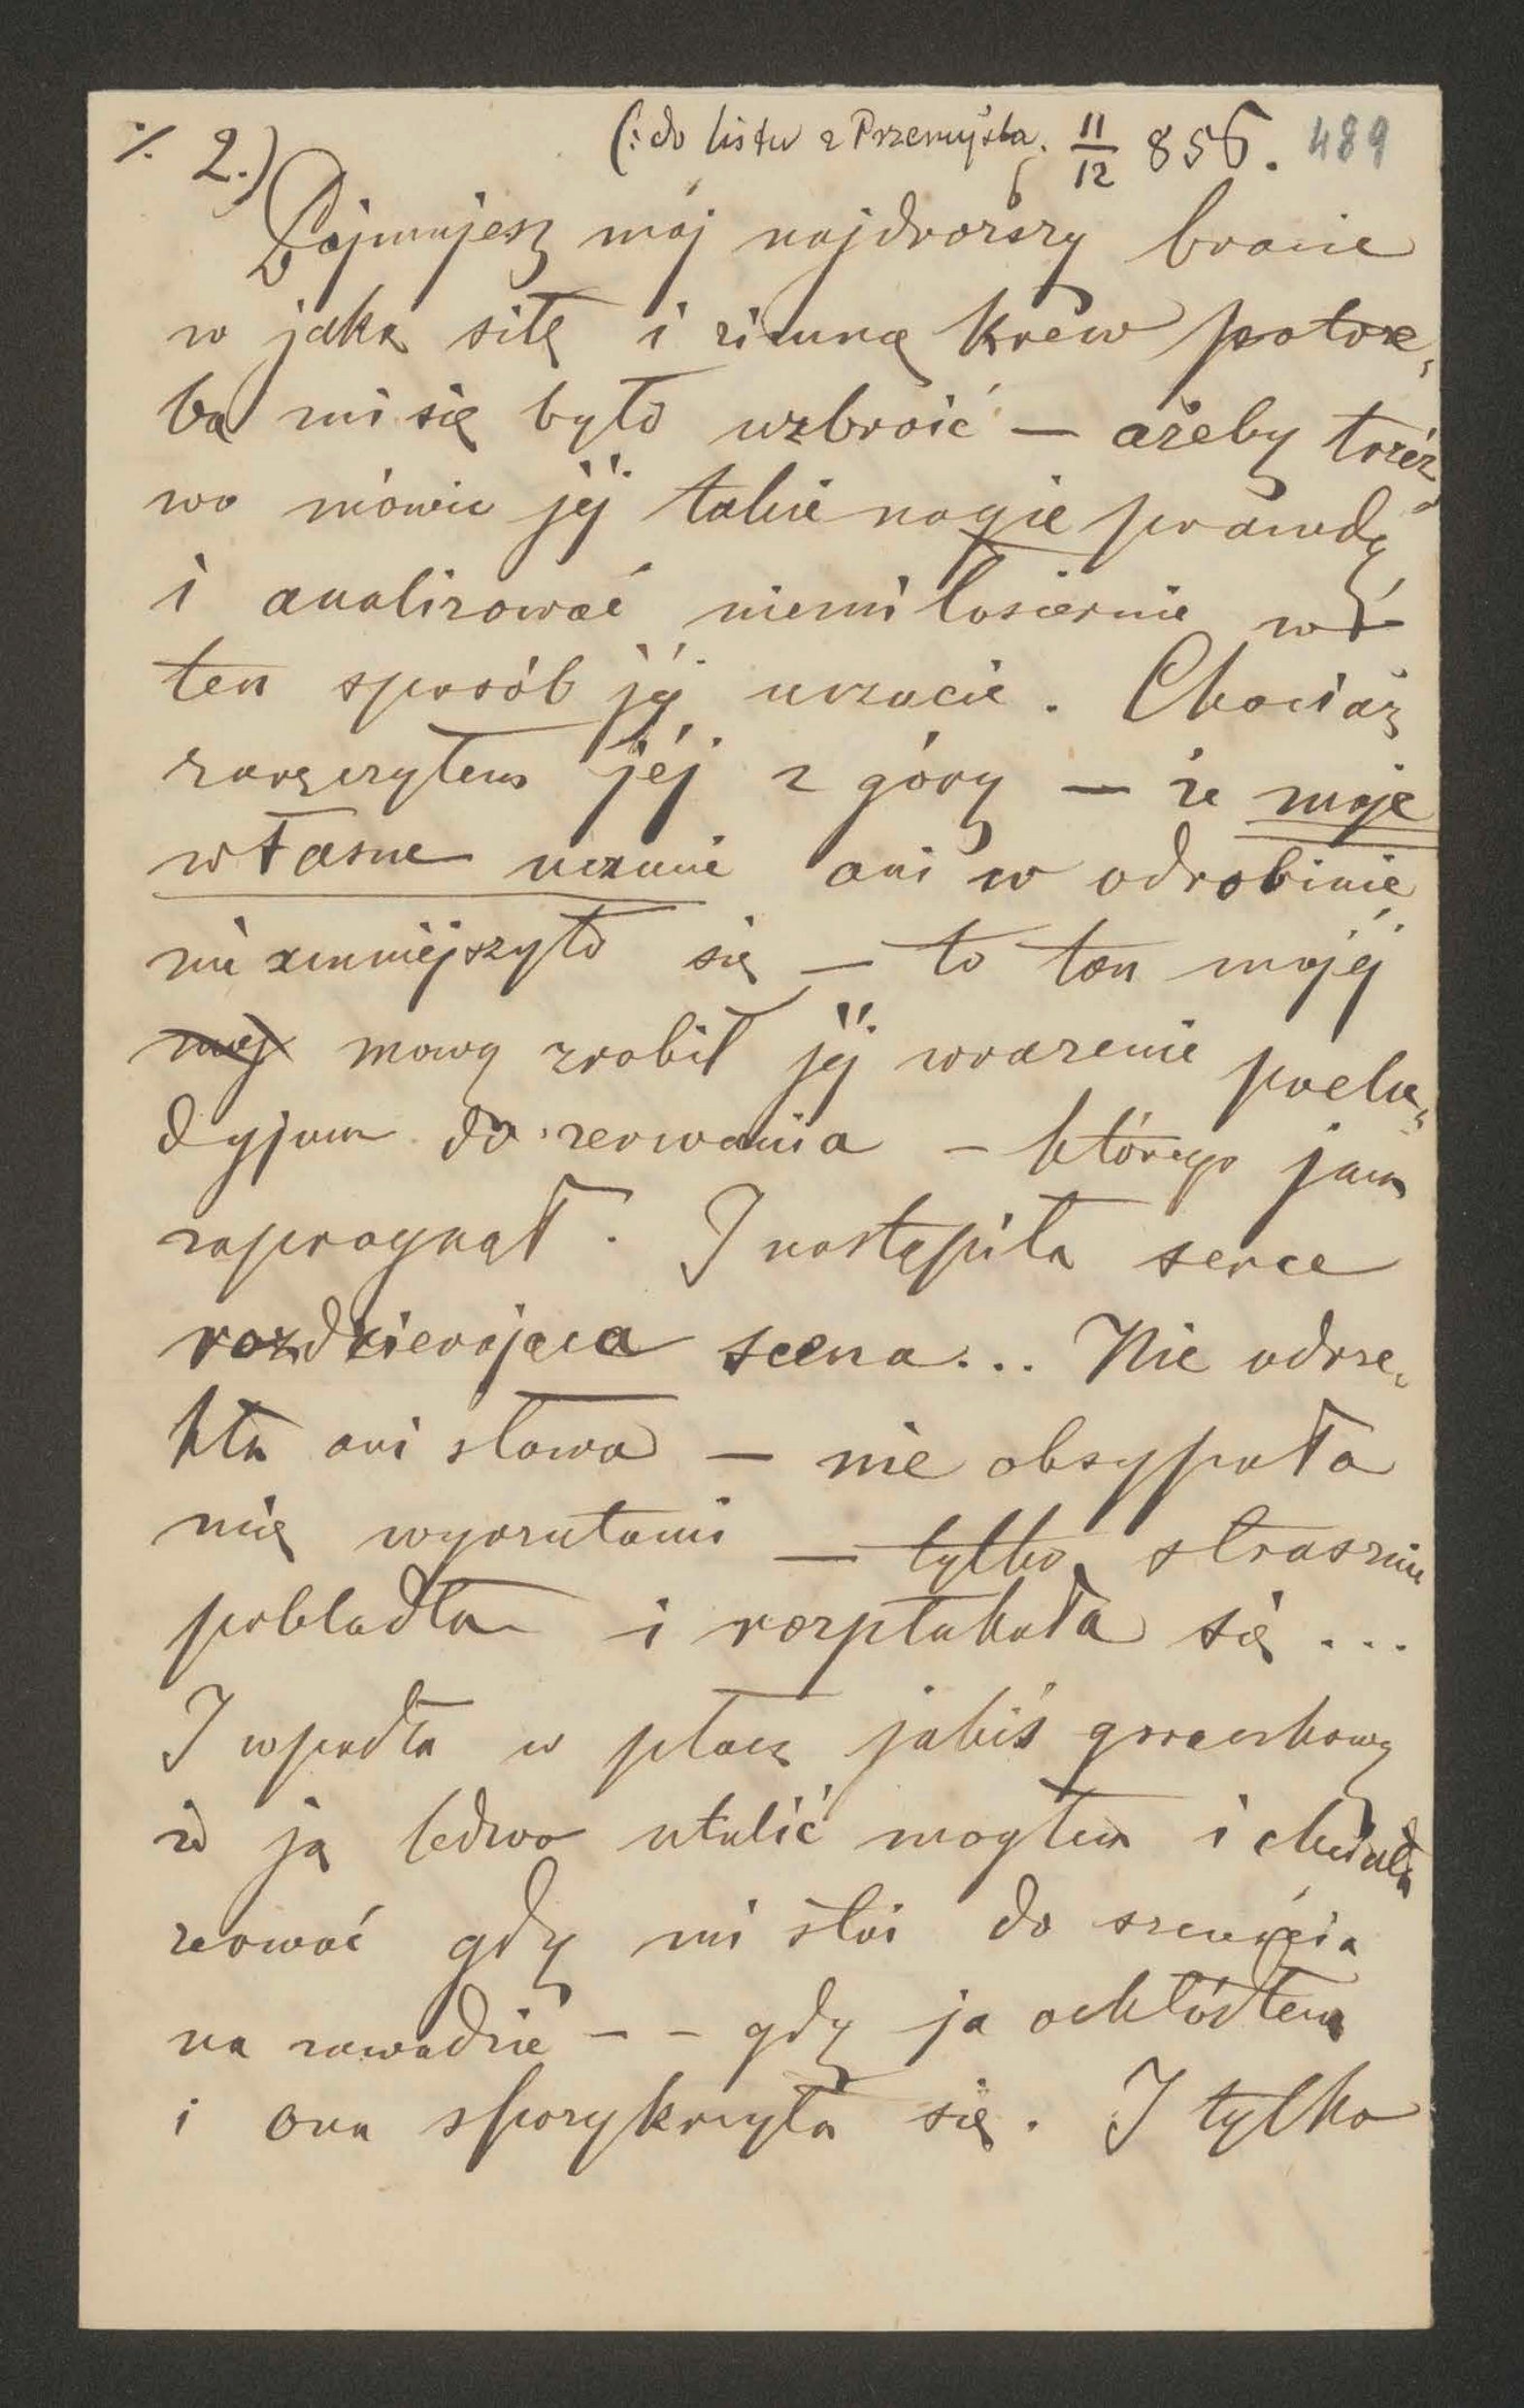 ./. 2.) (: do listu z Przemyśla. 11/12 856. 489
Pojmujesz mój najdroższy bracie
w jaką siłę i zimną krew potrze„
ba mi się było uzbroić — ażeby trzéź
wo mówić jéj takie nagie prawdy
i analizować niemiłosiernie w
ten sposób jéj uczucie. Chociaż
zaręczyłem jéj z góry — że moje
własne uczucie ani w odrobinie
nie zmniejszyło się — to ton mojéj
moj mowy zrobił jéj wrażenie prelu„
dyjum do zerwania — którego jam
zapragnął. I nastąpiła serce
rozdzierająca scena... Nie odrze„
kła ani słowa — nie obsypała
mię wyrzutami — tylko strasznie
pobladła i rozpłakała się ...
I wpadła w płacz jakiś gorączkowy
iż ja ledwo utulić mogłem i chciała
zerwać gdy mi stoi do szczęścia
na zawadzie — — gdy ja ochłódłem
i ona sprzykrzyła się. I tylko